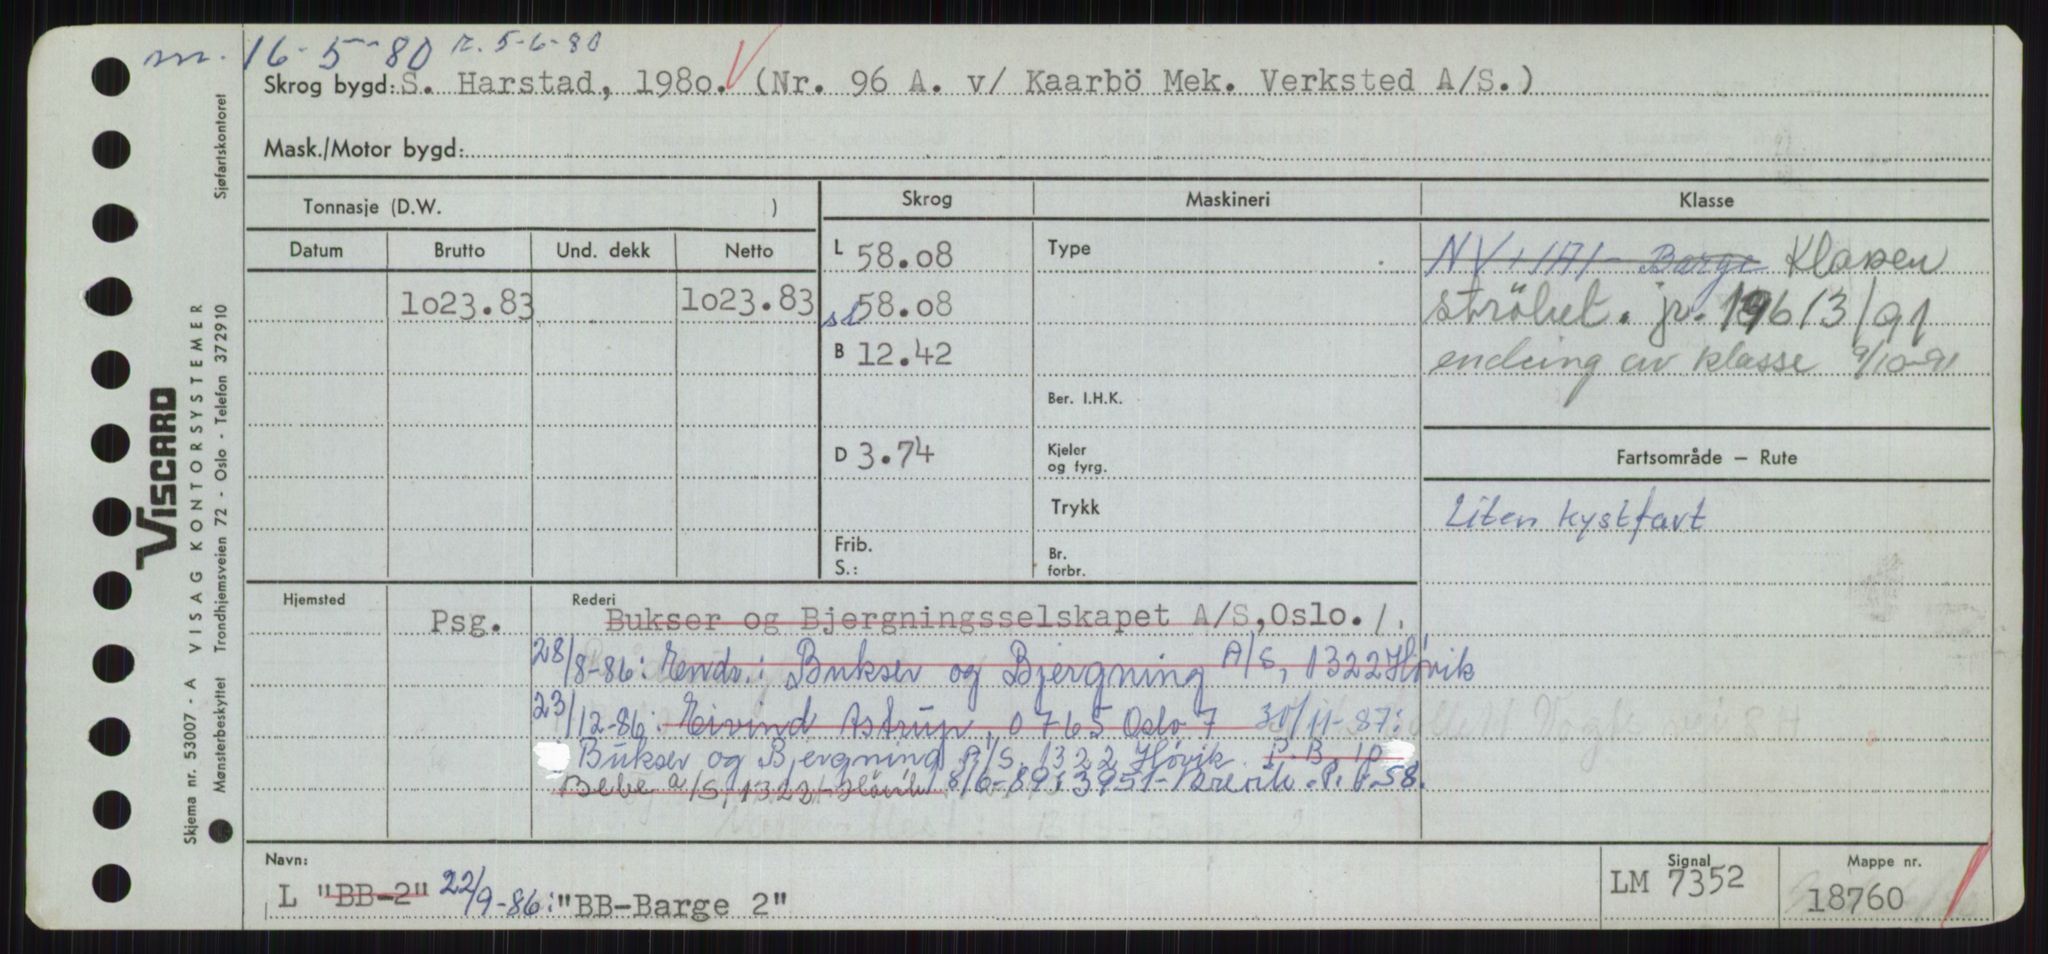 m. 16-5-80 r. 5-6-80
Skrog bygd: S. Harstad, 198o. (Nr. 96 A. v/ Kaarbö Mek. Verksted A/S.)
Mask./Motor bygd:
Tonnasje (D.W. ) Skrog Maskineri Klasse
Datum Brutto Und. dekk Netto
L 58.o8 Type
NV 1A1 - Barge Klassen
1o23.83 1o23.83 sl 58.o8
ströket. jr. 196/3/91
B 12.42
endring av klasse 9/10-91
Ber. I.H.K.
D 3.74 Kjeler og fyrg.
Fartsområde – Rute
Trykk
Liten kystfart
Frib. S.: Br. forbr.
Hjemsted Rederi
Psg. Bukser og Bjergningsselskapet A/S, Oslo. /.
28/8-86: Endr.: Bukser og Bjergning A/S, 1322 Høvik
23/12-86: Eivind Astrup, 0765 Oslo 7 30/11-87:
Bukser og Bjergning A/S, 1322 Høvik P.B.
Bebe a/S, 1322 Hövik 8/6-89: 3951- Brevik. P. b. 58.
Navn: Signal Mappe nr.
L "BB-2" 22/9-86: "BB-Barge 2" LM 7352 18760
VISCARD
VISAG KONTORSYSTEMER
Skjema nr. 53007 - A
Mønsterbeskyttet Trondhjemsveien 72 - Oslo - Telefon 372910
Sjøfartskontoret